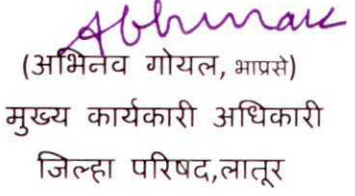 Abhinav
(अभिनव गोयल, भाप्रसे)
मुख्य कार्यकारी अधिकारी
जिल्हा परिषद,लातूर